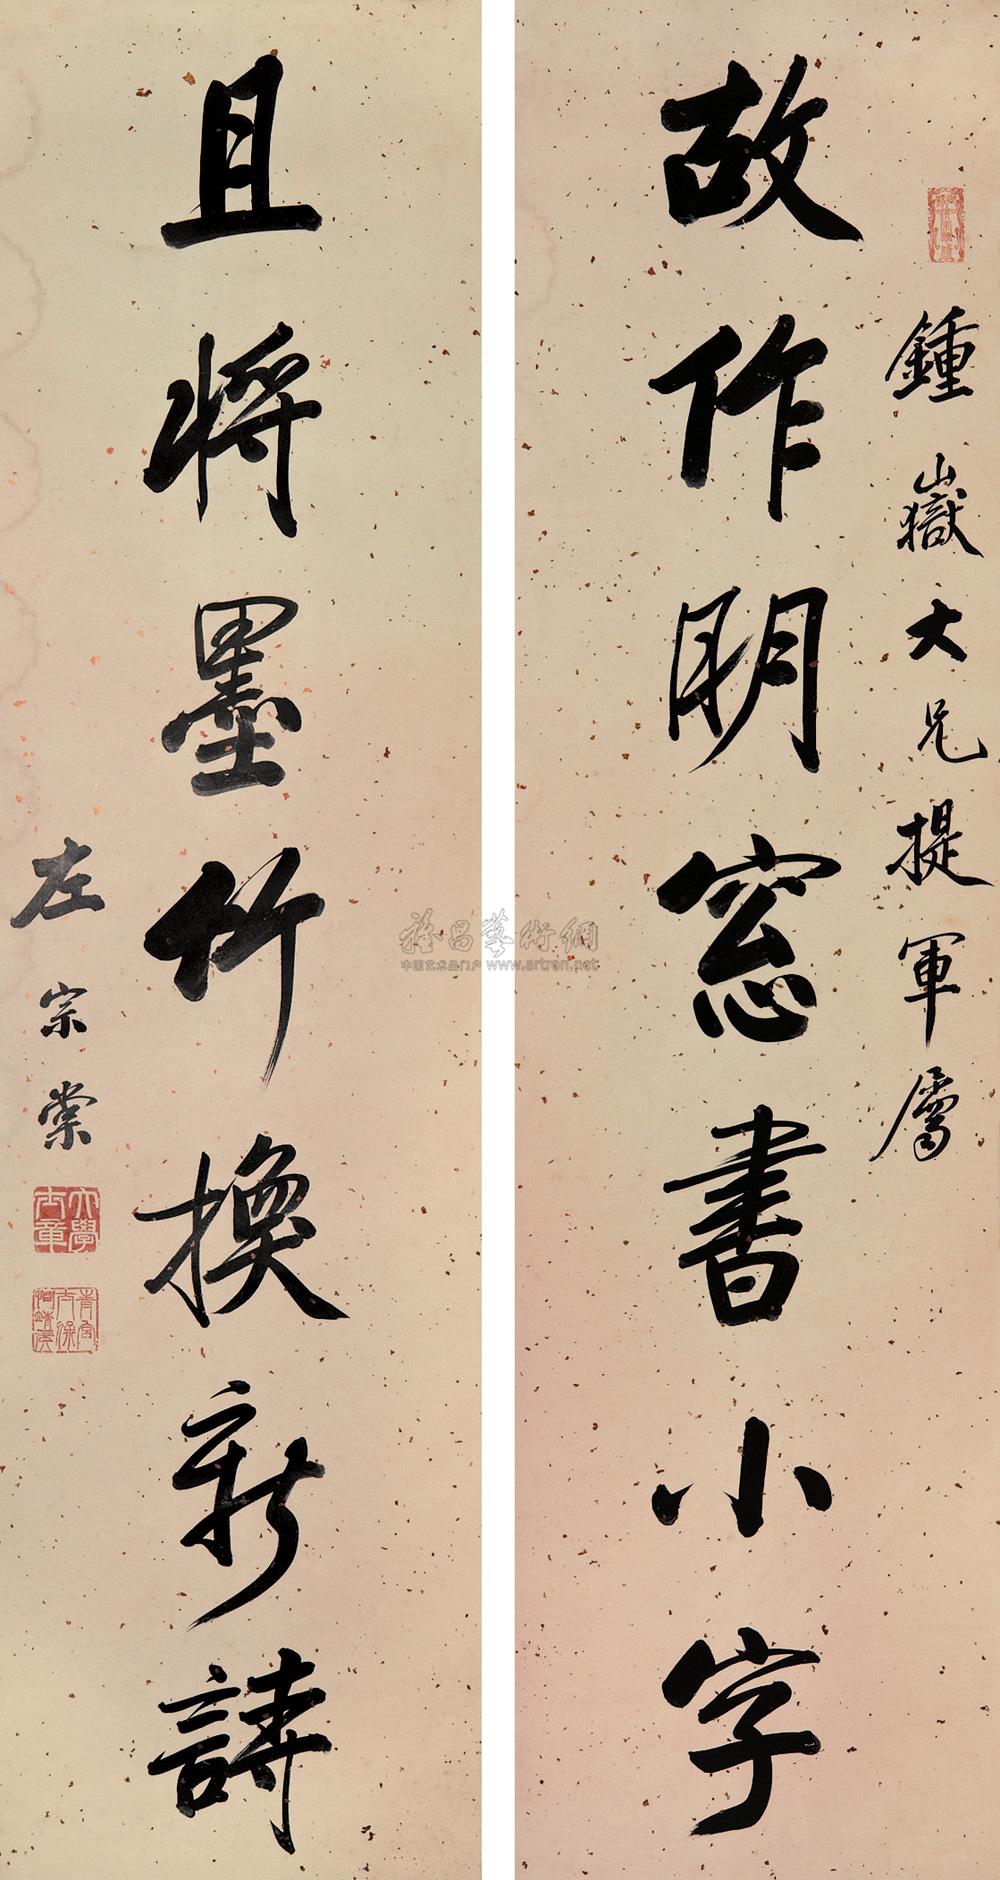 故作明窓書小字
鍾嶽大兄提軍屬
且將墨竹換新詩
左宗棠
大學士章
雅昌藝術網
中国艺术品门户 www.artron.net